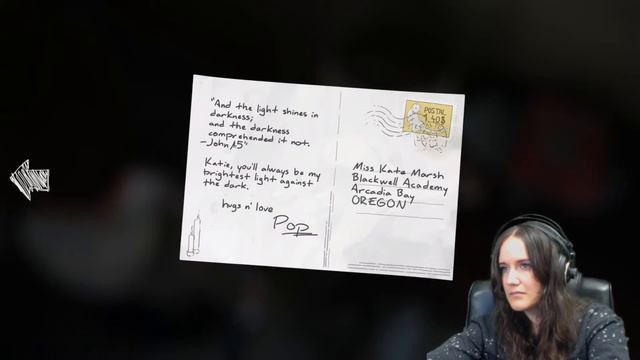 "And the light shines in
darkness;
and the darkness
comprehended it not.
-John 1:5"
Katie, you'll always be my
brightest light against
the dark.
hugs n' love
Pop
POSTAL
1,40$
Miss Kate Marsh
Blackwell Academy
Arcadia Bay
OREGON